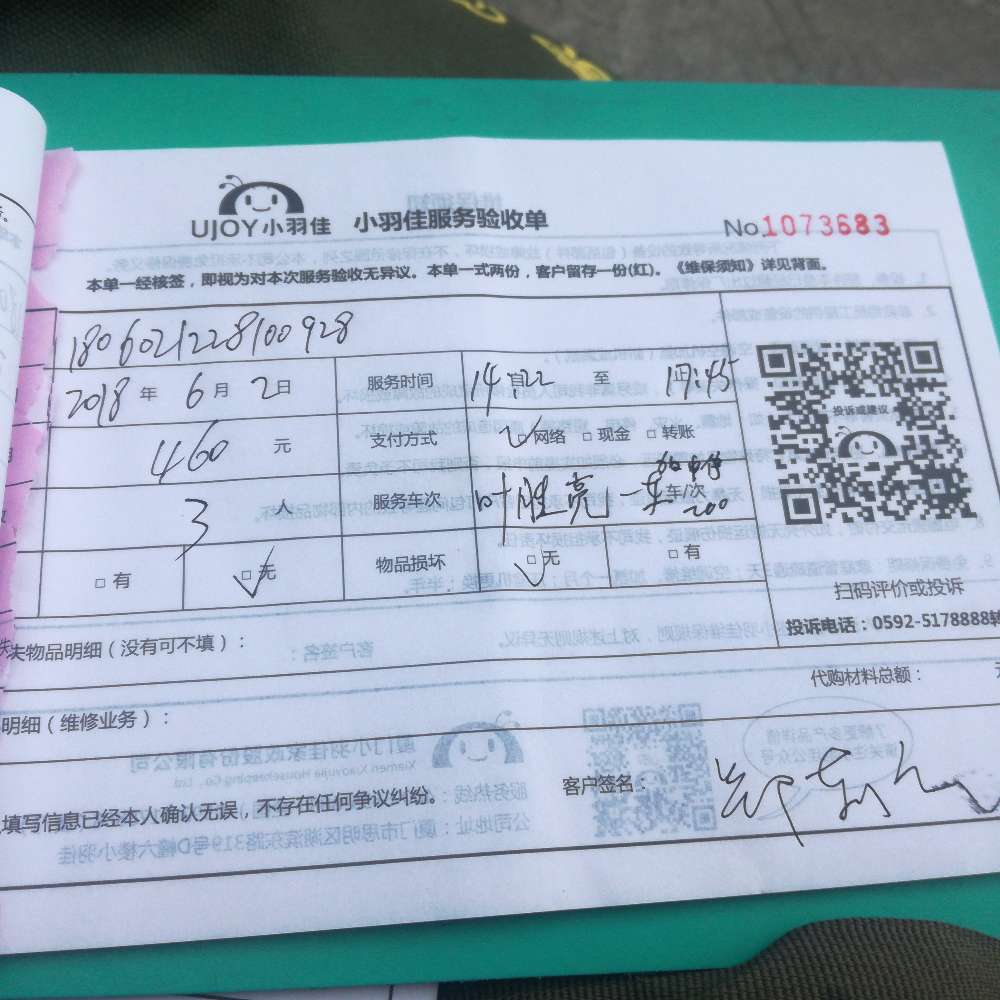 UJOY小羽佳 小羽佳服务验收单 No.1073683
本单一经核签，即视为对本次服务验收无异议。本单一式两份，客户留存一份(红)。《维保须知》详见背面。
1806021228100928
2018年6月2日 服务时间 14:22 至 17:45
460元 支付方式 □网络 □现金 □转账
3人 服务车次 叶胜亮 一车 车/次 200
□有 □无 物品损坏 □无 □有
投诉或建议
扫码评价或投诉
投诉电话：0592-5178888转
失物品明细（没有可不填）：
代购材料总额：
明细（维修业务）：
填写信息已经本人确认无误，不存在任何争议纠纷。 客户签名：